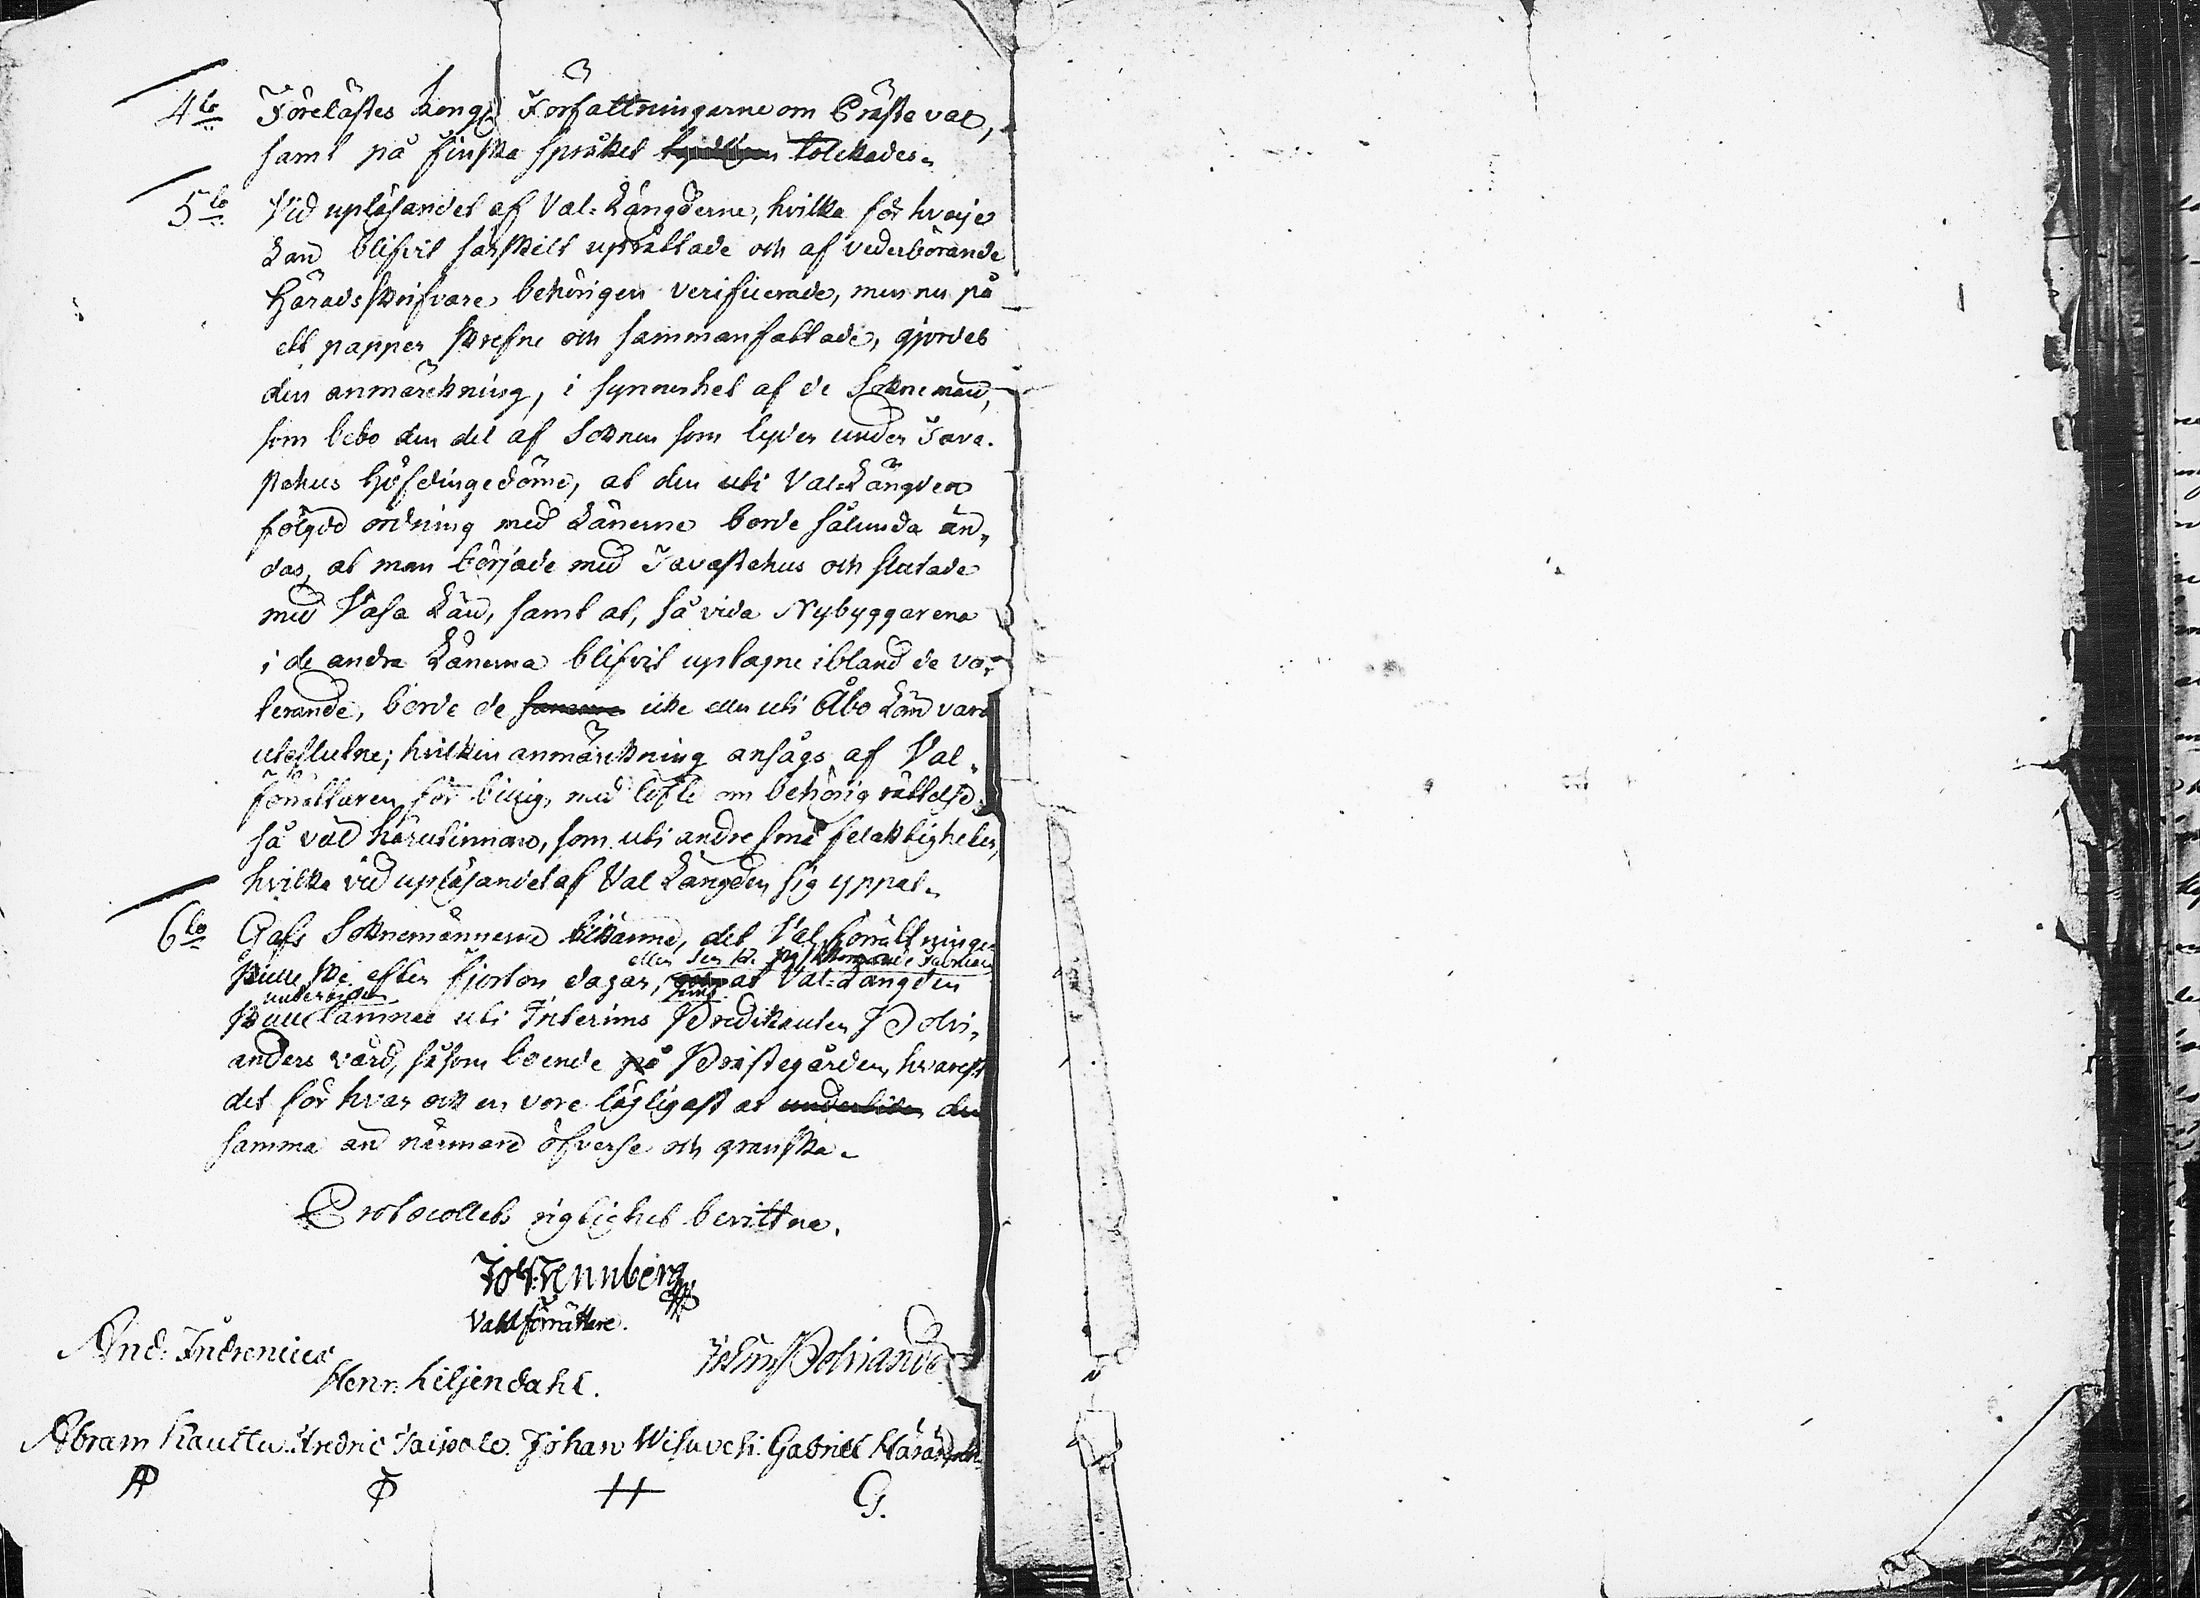 4to Förelästes Kongl. Författningarne om Prästeval,
samt på finska språket tolckades.
5to Vid upläsandet af Val-Längderne, hvilka för hvarje
Län blifvit särskilt uprättade och af vederbörande
Häradsskrifvare behörigen verificerade, men nu på
ett papper skrefne och sammanfattade, gjordes
den anmärckning, i synnerhet af de Soknemän,
som bebo den del af Soknen som lyder under Tava-
stehus Höfdingedöme, at den uti Val-Längden
fölgde ordning med Länerne borde sålunda än-
das, at man började med Tavastehus och slutade
med Vasa Län, samt at, så vida Nybyggarena
i de andra Länerna blifvit uptagne ibland de vo-
terande, borde de icke eller uti Åbo Län vara
uteslutne; hvilken anmärckning ansågs af Val-
Förrättaren för billig, med löfte om behörig rättelse
så väl härutinnan, som uti andre små felaktigheter,
hvilka vid upläsandet af Val Längden sig yppat.
6to Gafs Soknemännerne tilkänna, det Valförrättningen
eller den 14
skulle ske efter fjorton dagar, at Val-Längden
underviden
skulle lämnas uti Interims Predikanten Polvi-
anders vård, såsom boende på Prästegården, hvarest
det för hvar och en vore läjligast at den
samma än närmare öfverse och granska.
Protocollets rigtighet bevittna.
Joh. Tennberg
Valförrättare.
And. Indrenius Polviander
Henr. Liljendahl.
Abram Kauttu Fredric Taipale Johan Wihuvehi Gabriel
AP F H G.